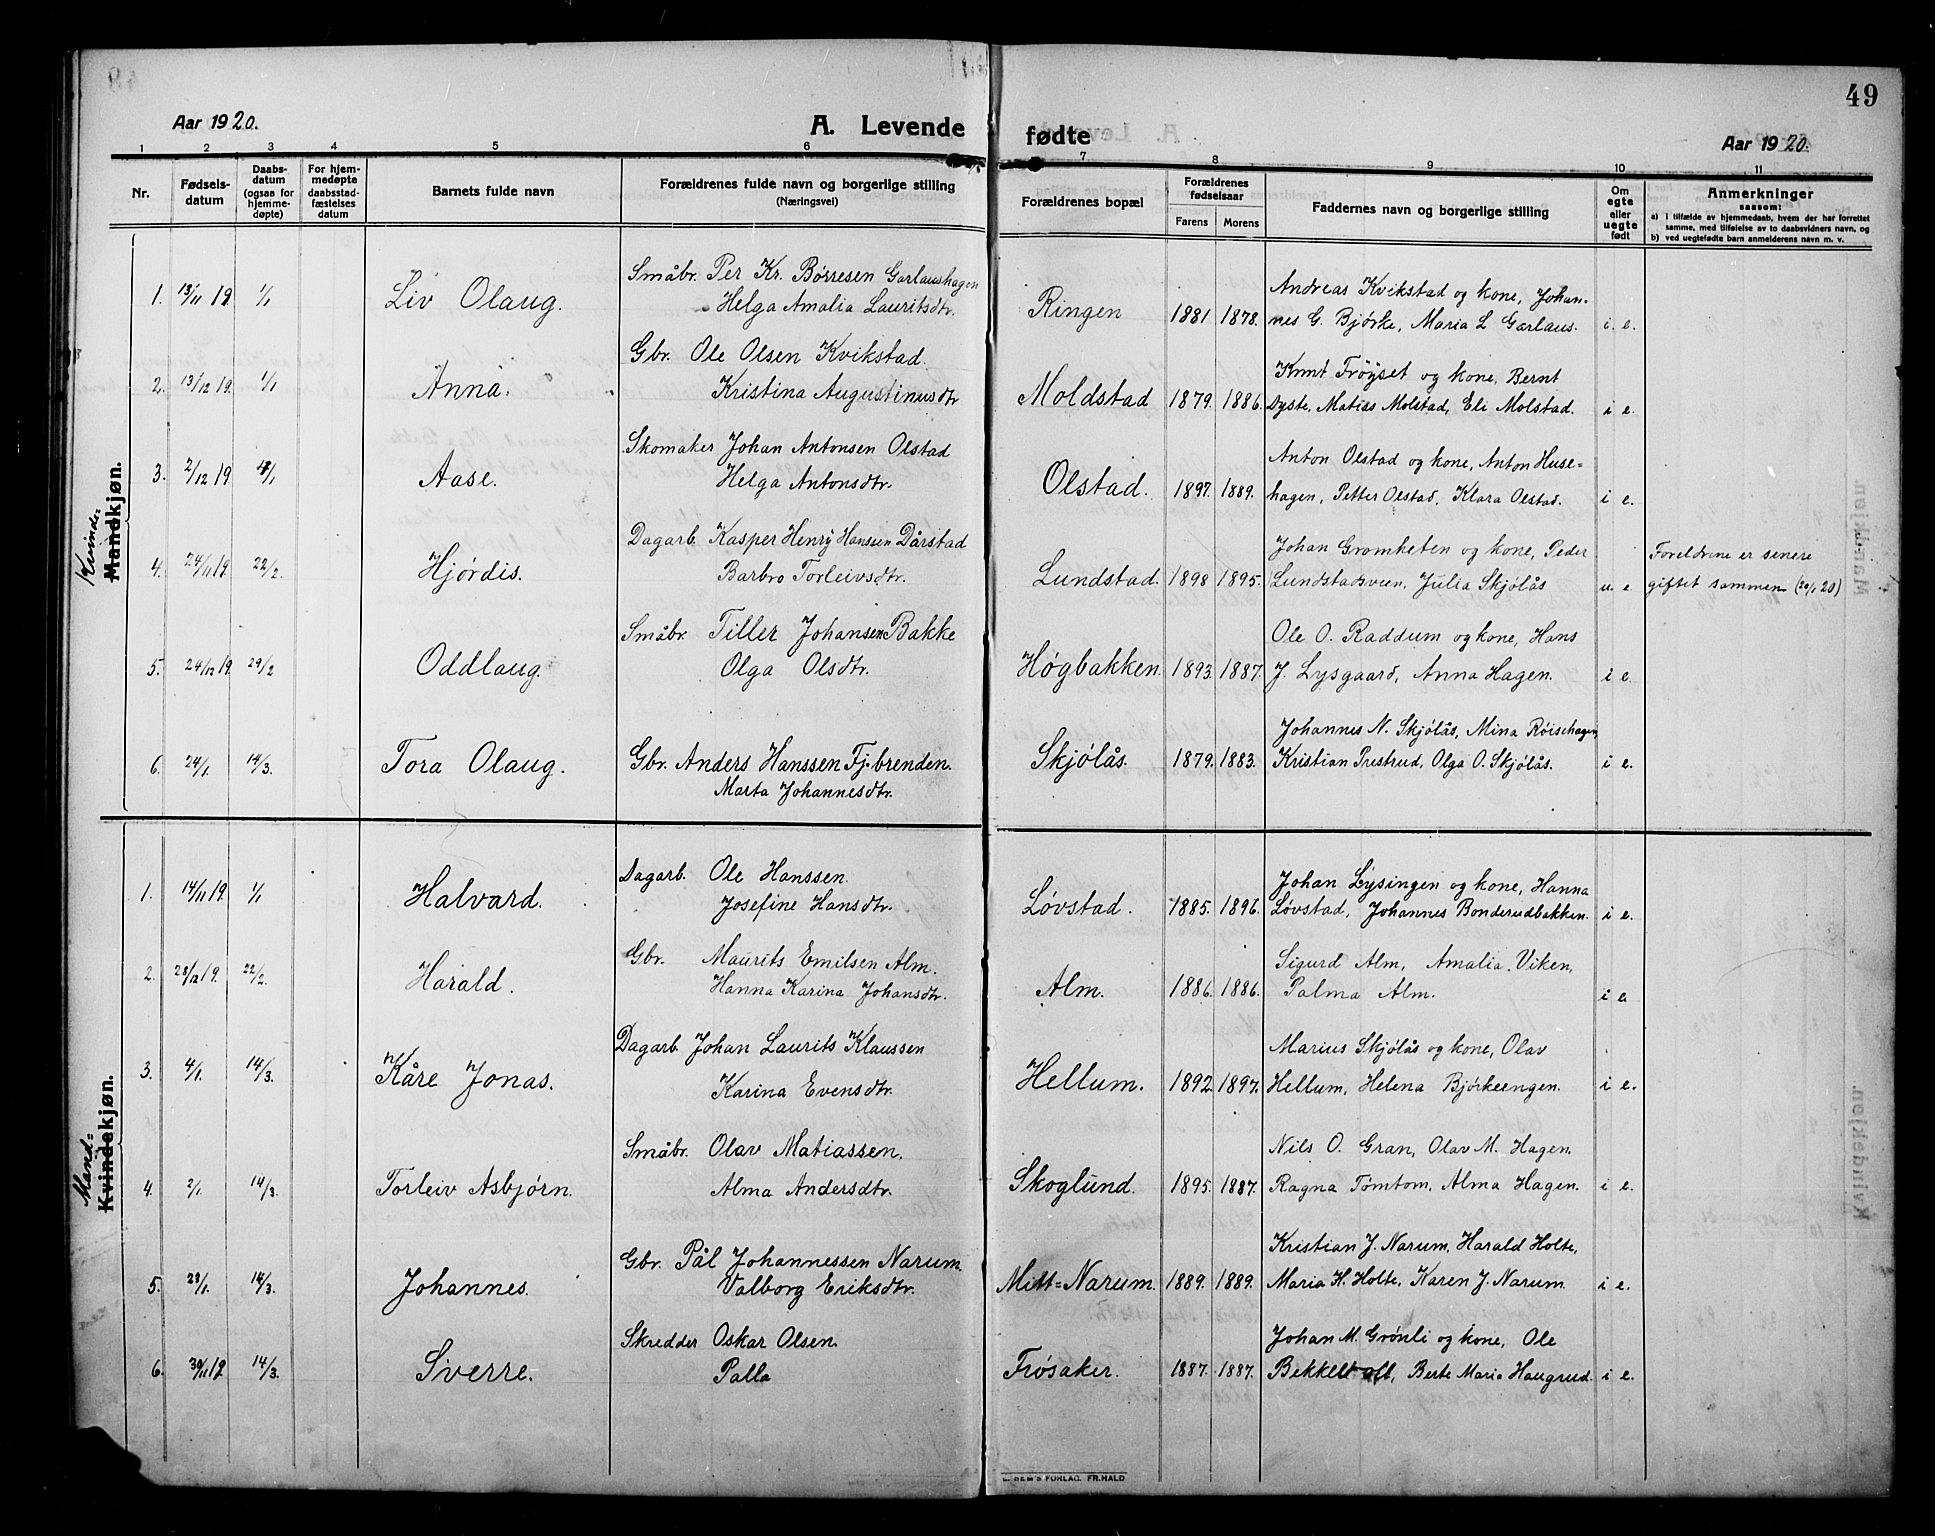 49
Aar 1920.
A. Levende
fødte
Aar 1920.
1 2 3 4 5 6 7 8 9 10 11
Nr.
Fødsels-
datum
Daabs-
datum
(ogsaa for
hjemme-
døpte)
For hjem-
medøpte
daabsstad-
fæstelses
datum
Barnets fulde navn
Forældrenes fulde navn og borgerlige stilling
(Næringsvei)
Forældrenes bopæl
Forældrenes
fødselsaar
Farens Morens
Faddernes navn og borgerlige stilling
Om
egte
eller
uegte
født
Anmerkninger
saasom:
a) i tilfælde av hjemmedaab, hvem der har forrettet
samme, med tilføielse av to daabsvidners navn, og
b) ved uegtefødte barn anmelderens navn m. v.
Kvinde-
Mandkjøn.
1. 13/11 19. 1/1 Liv Olaug. Småbr. Per Kr. Børresen Garlaushagen
Helga Amalia Lauritsdtr.
Ringen 1881 1878. Andreas Kvikstad og kone, Johan-
nes G. Bjørke, Maria L Gærlaus. i. e.
2. 13/12 19. 1/1 Anna. Gbr. Ole Olsen Kvikstad.
Kristina Augustinusdtr
Moldstad 1879. 1886. Knut Frøyset og kone, Bernt
Dyste, Matias Molstad, Eli Molstad. i e.
3. 2/12 19 /1 Aase. Skomaker Johan Antonsen Olstad
Helga Antonsdtr.
Olstad. 1897. 1889. Anton Olstad og kone, Anton Huse-
hagen, Petter Olstad, Klara Olstad. i e.
4. 24/11 19. 22/2. Hjórdis. Dagarb. Kasper Henry Hanssen Dårstad
Barbro Torleivsdtr.
Lundstad. 1898 1895. Johan Gromheten og kone, Peder
Lundstadsveen, Julia Skjólås u. e.
Foreldrene er senere
giftet sammen (20/1 20)
5. 24/12 19. 29/2 Oddlaug. Småbr. Tiller Johansen Bakke
Olga Olsdtr.
Høgbakken. 1893. 1887. Ole O. Raddum og kone, Hans
J. Lysgaard, Anna Hagen. i e.
6. 24/1. 14/3. Tora Olaug. Gbr. Anders Hanssen Fj.brenden.
Marta Johannesdtr.
Skjólås. 1879. 1883. Johannes N. Skjólås, Mina Róisehagen,
Kristian Prestrud, Olga O. Skjólås. i e.
Mand-
Kvindekjøn.
1. 14/11 19. 1/1 Halvard. Dagarb. Ole Hanssen.
Josefine Hansdtr.
Løvstad. 1885. 1896. Johan Lysingen og kone, Hanna
Løvstad, Johannes Bonderudbakken. i e.
2. 28/12 19. 22/2. Harald. Gbr. Maurits Emilsen Alm.
Hanna Karina Johansdtr.
Alm. 1886. 1886. Sigurd Alm, Amalia Viken,
Palma Alm. i e.
3. 4/1. 14/3. Kåre Jonas. Dagarb. Johan Laurits Klaussen
Karina Evensdtr.
Hellum. 1892. 1897. Marius Skjólås og kone, Olav
Hellum, Helena Bjórkeengen. i e.
4. 2/1 14/3. Torleiv Asbjørn. Småbr. Olav Matiassen.
Alma Andersdtr.
Skoglund. 1895. 1887. Nils O. Gran, Olav M. Hagen.
Ragna Tómtom, Alma Hagen. i e.
5. 28/1. 14/3. Johannes. Gbr. Pål Johannessen Narum.
Valborg Eriksdtr.
Mitt=Narum. 1889. 1889. Kristian J. Narum, Harald Holte,
Maria H. Holte, Karen J. Narum. i e.
6. 30/11 19 14/3. Sverre. Skredder Oskar Olsen.
Palla
Frósaker. 1887. 1887. Johan M. Grónli og kone, Ole
Berte Maria Haugrud. i e.
FORLAG. FR.HALD